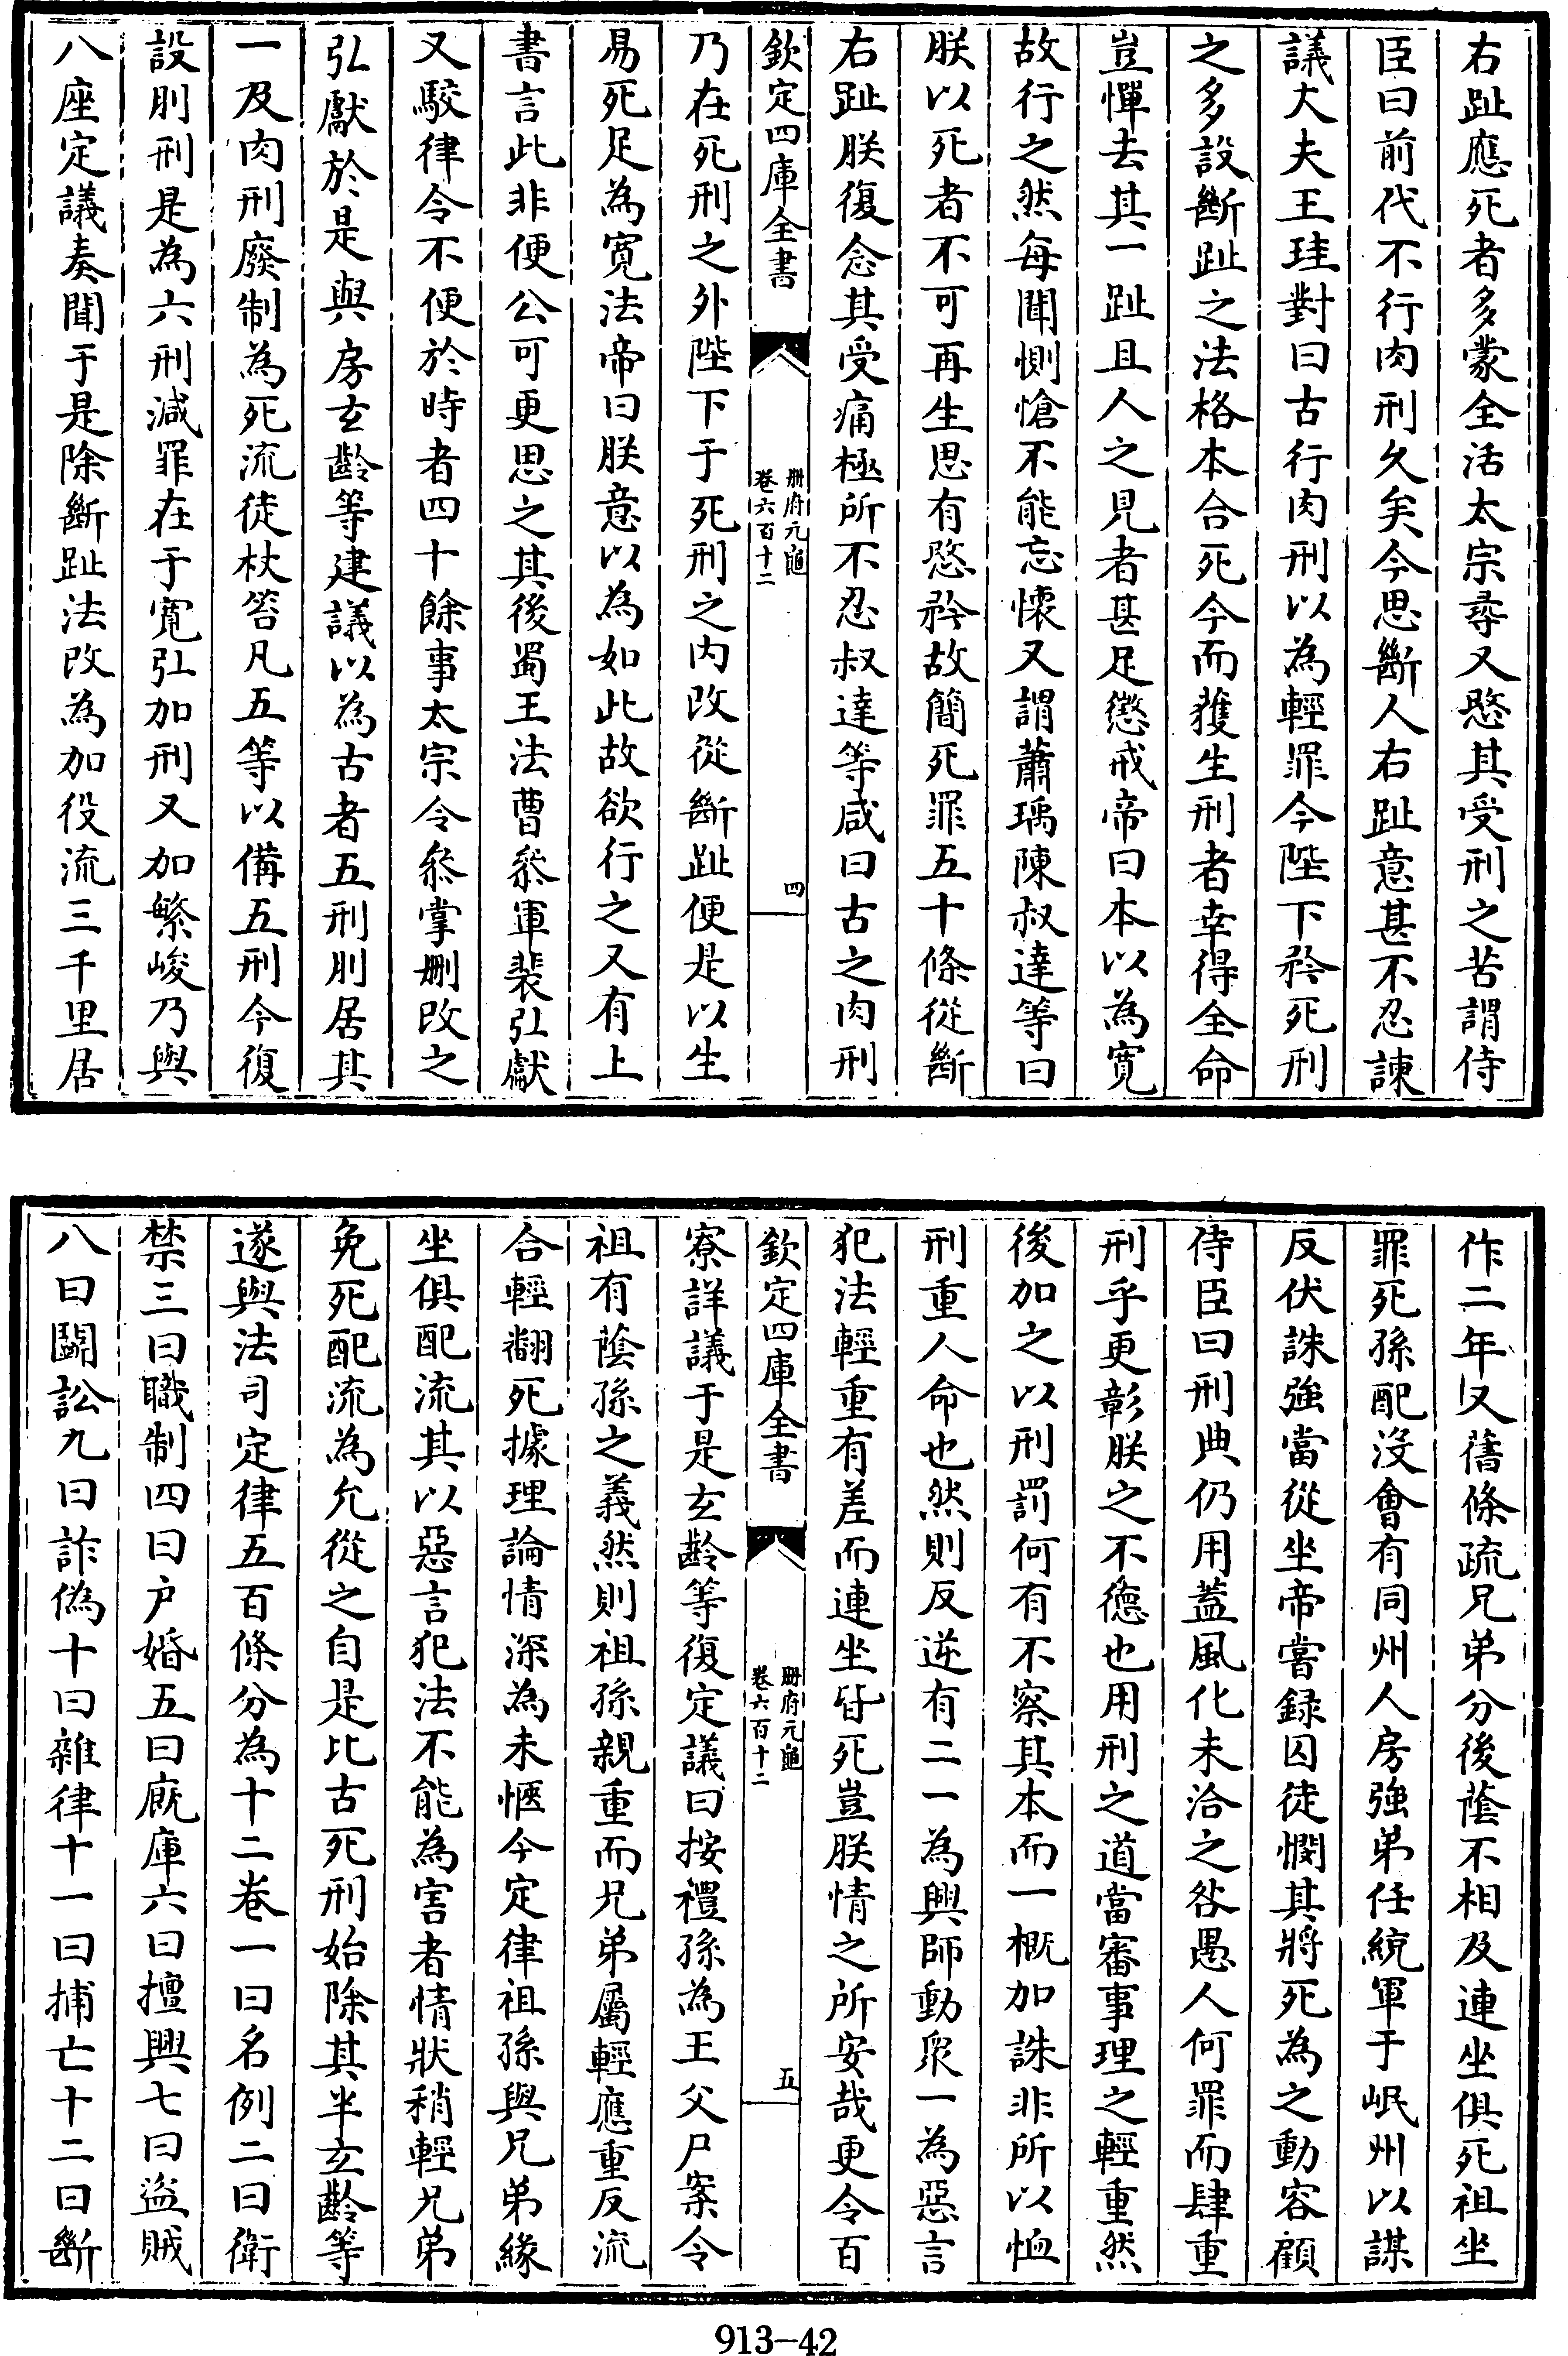 右趾應死者多蒙全活太宗尋又愍其受刑之苦謂侍
臣曰前代不行肉刑久矣今思斷人右趾意甚不忍諫
議大夫王珪對曰古行肉刑以為輕罪今陛下矜死刑
之多設斷趾之法格本合死今而獲生刑者幸得全命
豈憚去其一趾且人之見者甚足懲戒帝曰本以為寛
故行之然每聞惻愴不能忘懷又謂蕭瑀陳叔達等曰
朕以死者不可再生思有愍矜故簡死罪五十條從斷
右趾朕復念其受痛極所不忍叔達等咸曰古之肉刑
欽定四庫全書
冊府元龜
卷六百十二
四
乃在死刑之外陛下于死刑之内改從斷趾便是以生
易死足為寛法帝曰朕意以為如此故欲行之又有上
書言此非便公可更思之其後蜀王法曹叅軍裴弘獻
又駮律令不便於時者四十餘事太宗令叅掌刪改之
弘獻於是與房玄齡等建議以為古者五刑刖居其
一及肉刑廢制為死流徒杖笞凡五等以備五刑今復
設刖刑是為六刑減罪在于寛弘加刑又加繁峻乃與
八座定議奏聞于是除斷趾法改為加役流三千里居
作二年又舊條疏兄弟分後蔭不相及連坐俱死祖坐
罪死孫配没會有同州人房強弟任統軍于岷州以謀
反伏誅強當從坐帝嘗録囚徒憫其將死為之動容顧
侍臣曰刑典仍用蓋風化未洽之咎愚人何罪而肆重
刑乎更彰朕之不德也用刑之道當審事理之輕重然
後加之以刑罰何有不察其本而一概加誅非所以恤
刑重人命也然則反逆有二一為興師動衆一為惡言
犯法輕重有差而連坐皆死豈朕情之所安哉更令百
欽定四庫全書
冊府元龜
卷六百十二
五
寮詳議于是玄齡等復定議曰按禮孫為王父尸案令
祖有蔭孫之義然則祖孫親重而兄弟屬輕應重反流
合輕翻死據理論情深為未愜今定律祖孫與兄弟緣
坐俱配流其以惡言犯法不能為害者情狀稍輕兄弟
免死配流為允從之自是比古死刑始除其半玄齡等
遂與法司定律五百條分為十二卷一曰名例二曰衛
禁三曰職制四曰户婚五曰廐庫六曰擅興七曰盜賊
八曰鬭訟九曰詐偽十曰雜律十一曰捕亡十二曰斷
913-42